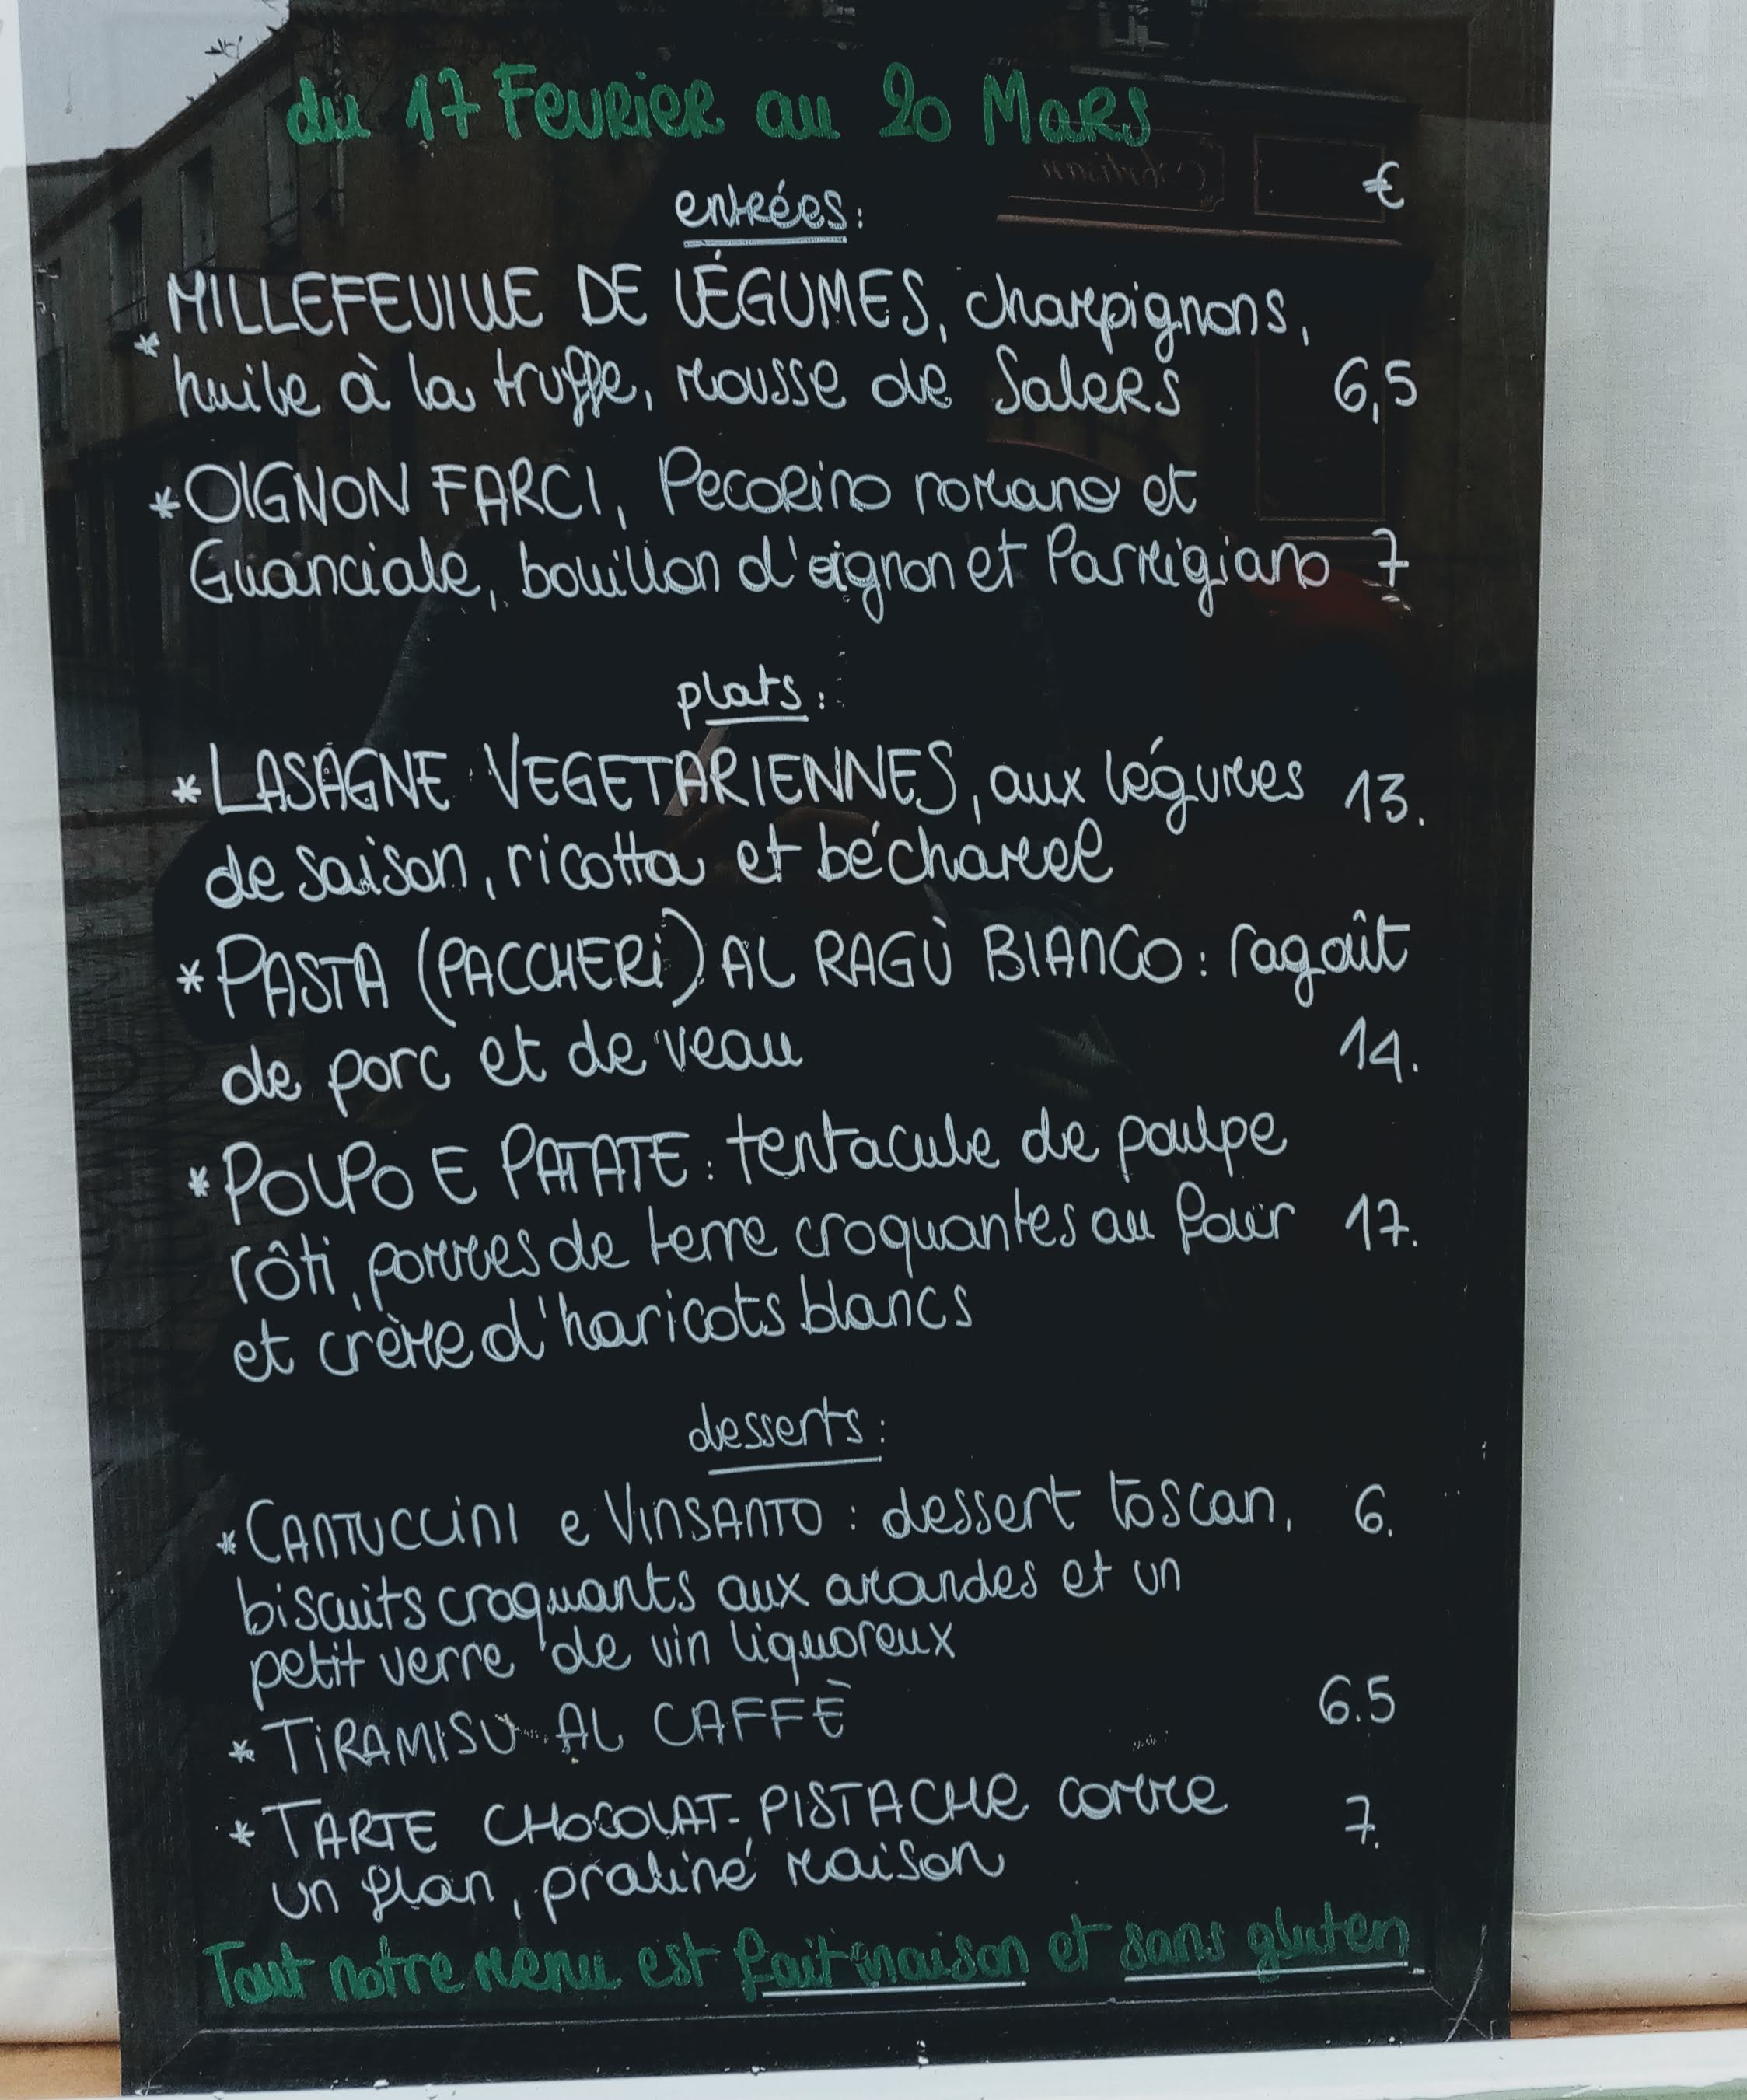 du 17 Fevrier au 20 Mars
€
entrées:
* MILLEFEUILLE DE LÉGUMES, champignons,
huile à la truffe, mousse de Salers 6,5
* OIGNON FARCI, Pecorino romano et
Guanciale, bouillon d'oignon et Parmigiano 7
plats:
* LASAGNE VEGETARIENNES, aux légumes 13.
de saison, ricotta et béchamel
* PASTA (PACCHERI) AL RAGÙ BIANCO: ragoût
de porc et de veau 14.
* POLPO E PATATE: tentacule de poulpe
rôti, pommes de terre croquantes au four 17.
et crème d'haricots blancs
desserts:
* CANTUCCINI e VINSANTO: dessert toscan, 6.
biscuits croquants aux amandes et un
petit verre de vin liquoreux
* TIRAMISU AL CAFFÈ 6.5
* TARTE CHOCOLAT-PISTACHE comme 7.
un flan, praliné maison
Tout notre menu est fait maison et sans gluten